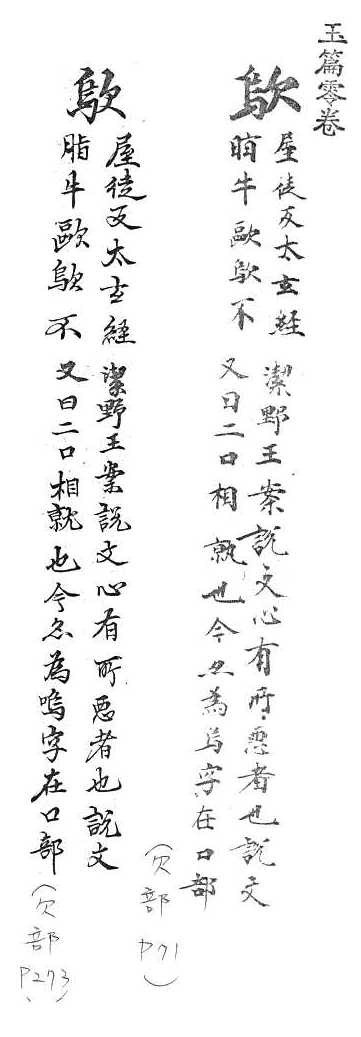 玉篇零卷
歍
屋徒反太玄經
脂牛歐歍不
潔野王案說文心有所惡者也說文
又曰二口相就也今亦為烏字在口部
(欠部 P71)
歍
屋徒反太玄經
脂牛歐歍不
潔野王案說文心有所惡者也說文
又曰二口相就也今亦為嗚字在口部
(欠部 P273)